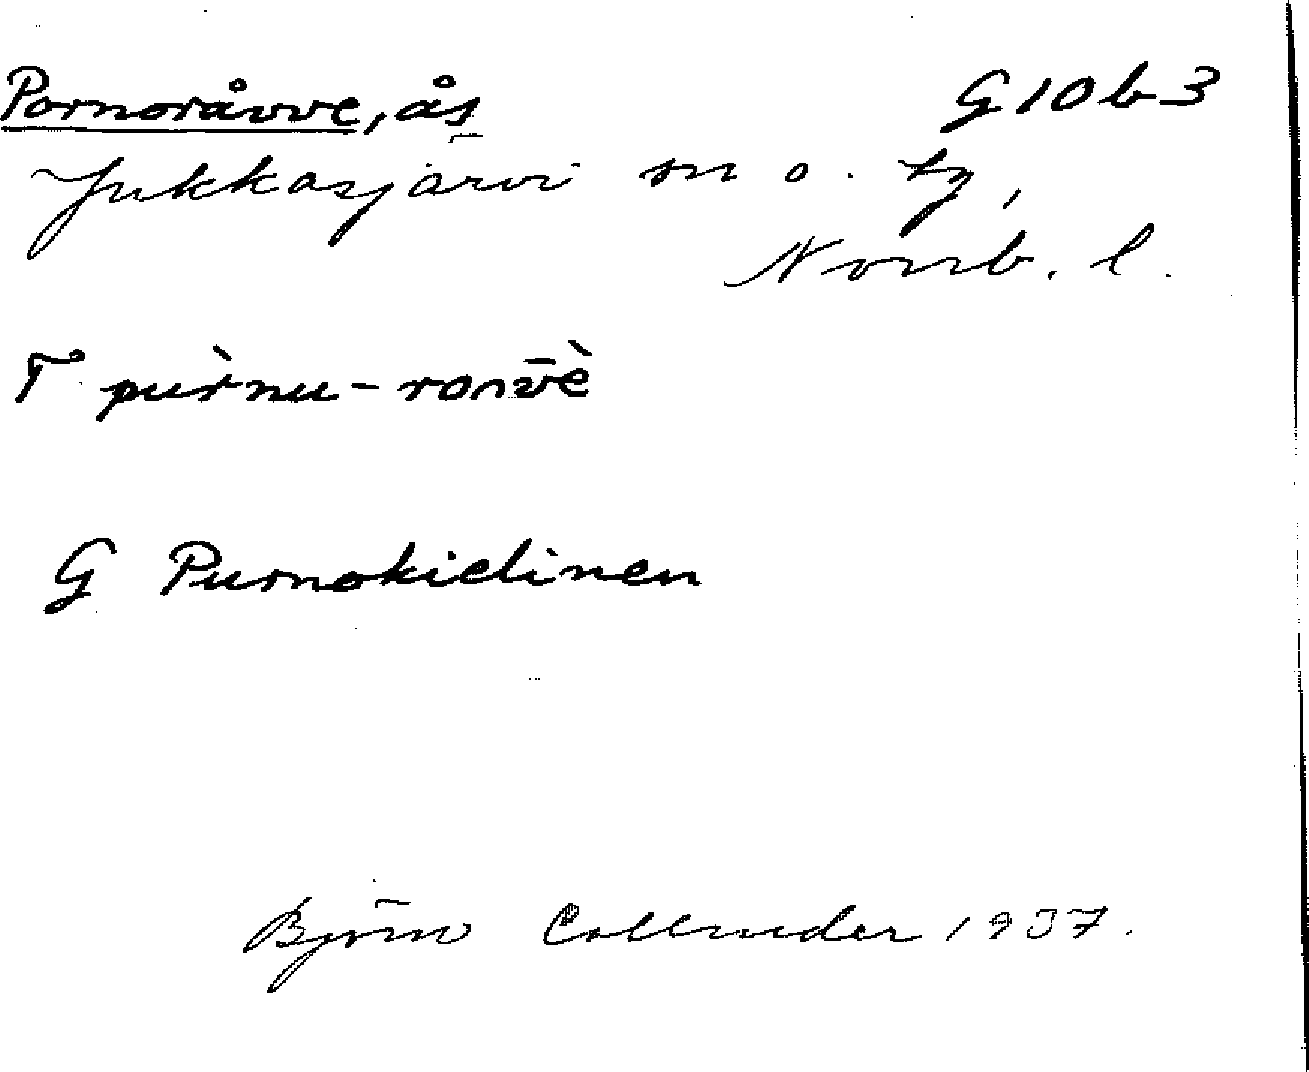 Pornoråvve, ås G10b3
Jukkasjärvi sn o. tg,
Norrb. l.
T purnu-
G Purnokielinen
Björn Collinder 1937.